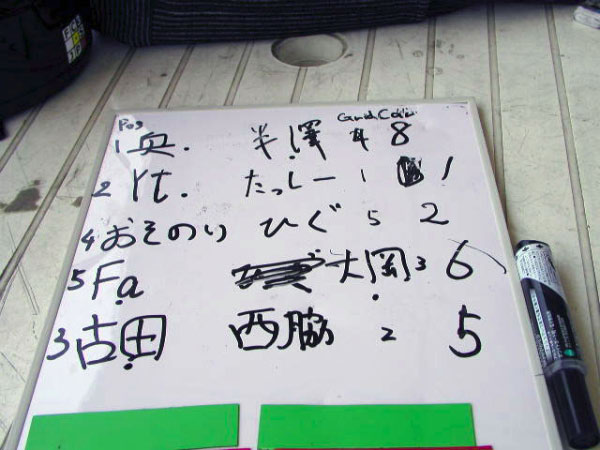 Pos
1 奥. 半澤 4 8
2 Yt. たっしー 1 1
4 おそのり ひぐ 5 2
5 Fa 大岡 3 6
3 古田 西脇 2 5